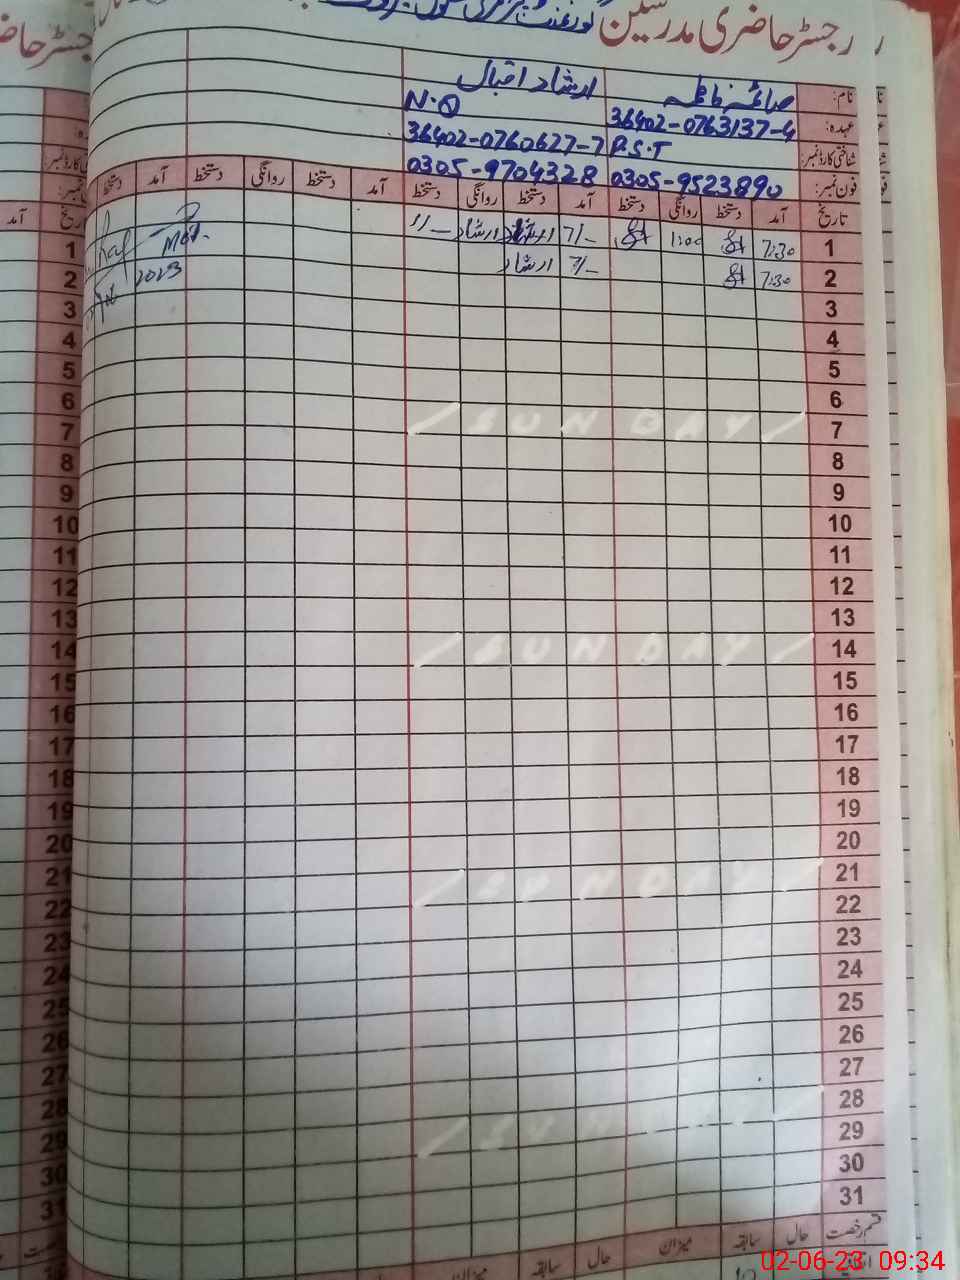 رجسٹر حاضری مدرسین
نام: صائمہ فاطمہ ارشاد اقبال
عہدہ: 36402-0763137-4 N.Q
شناختی کارڈ نمبر: P.S.T 36402-0760627-7
فون نمبر: 0305-9523890 0305-9704328
تاریخ آمد دستخط روانگی دستخط آمد دستخط روانگی دستخط آمد دستخط روانگی دستخط آمد دستخط
1 7:30 1:00 7/- ارشاد ارشاد 1/-
2 7:30 7/- ارشاد
2023
3
4
5
6
7 / SUNDAY /
8
9
10
11
12
13
14 / SUNDAY /
15
16
17
18
19
20
21 / SUNDAY /
22
23
24
25
26
27
28 / SUNDAY /
29
30
31
قسم رخصت حال سابقہ میزان حال سابقہ میزان
02-06-23 09:34